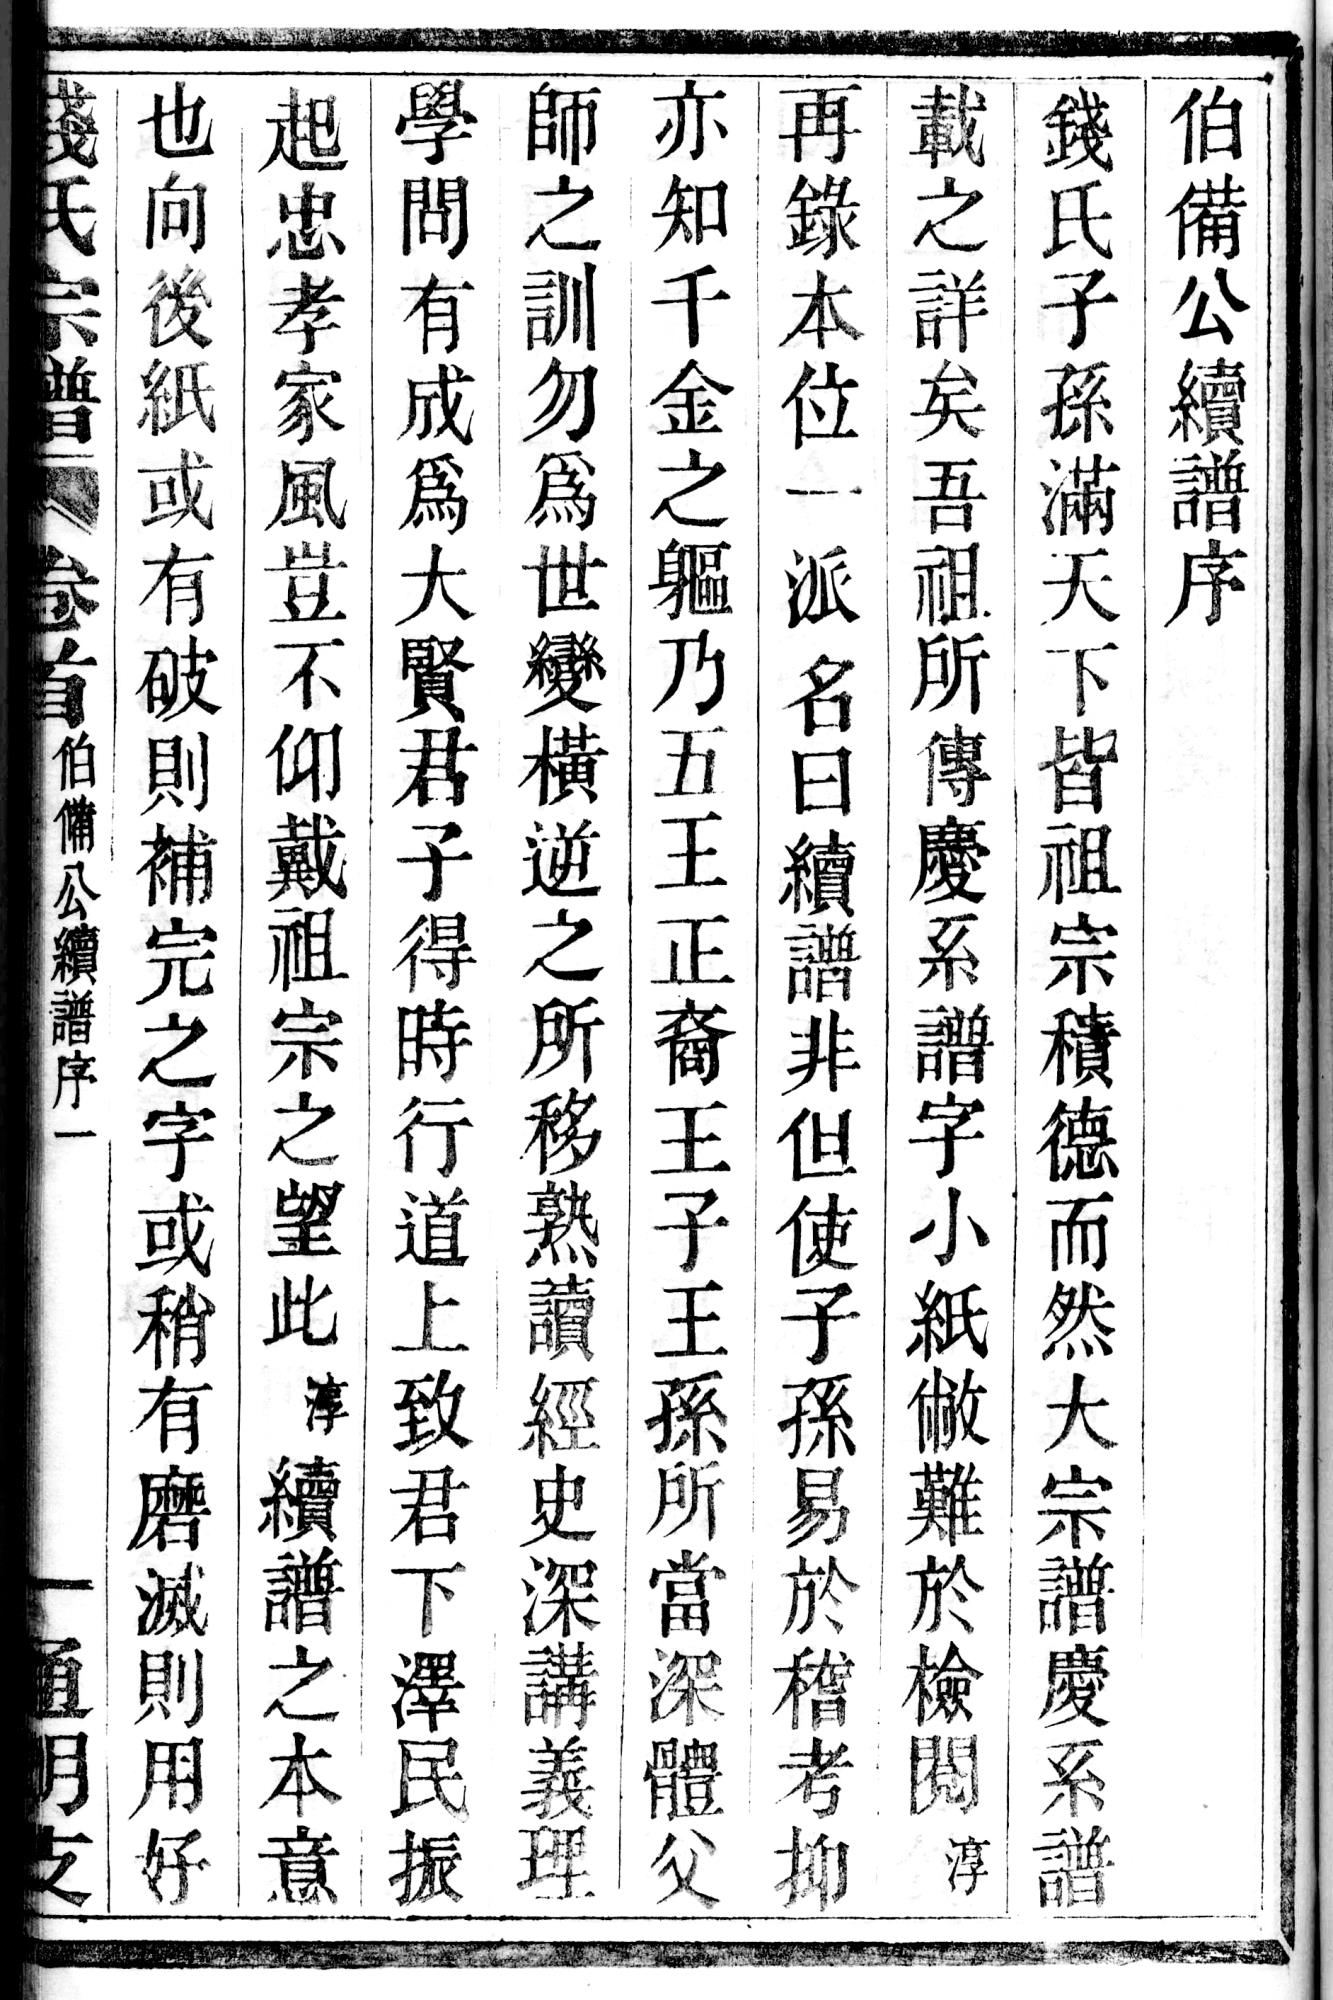 伯備公續譜序
錢氏子孫滿天下皆祖宗積德而然大宗譜慶系譜
載之詳矣吾祖所傳慶系譜字小紙僘難於檢閱淳
再錄本位一派名曰續譜非但使子孫易於稽考抑
亦知千金之軀乃五王正裔王子王孫所當深體父
師之訓勿爲世變橫逆之所移熟讀經史深講義理
學問有成爲大賢君子得時行道上致君下澤民振
起忠孝家風豈不仰戴祖宗之望此淳續譜之本意
也向後紙或有破則補完之字或稍有磨滅則用好
錢氏宗譜 卷首 伯備公續譜序一 一 通明支